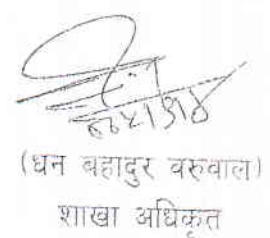 (धन बहादुर वरुवाल)
शाखा अधिकृत